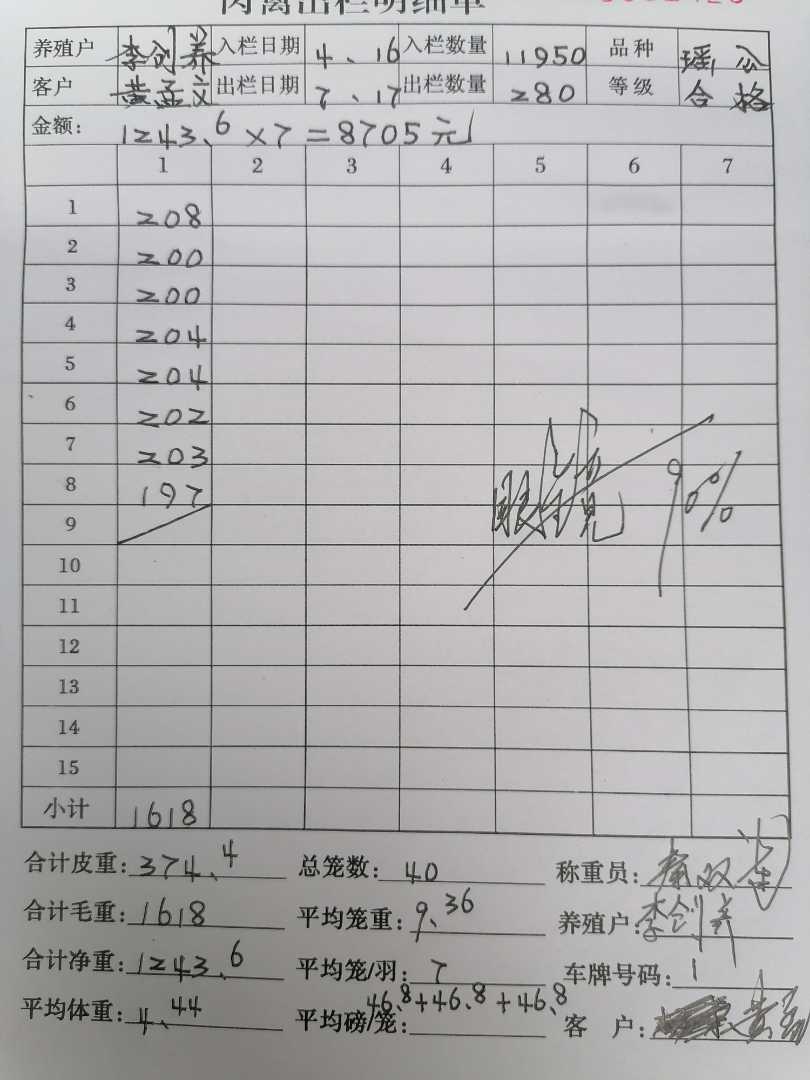 肉禽出栏明细单
养殖户 李剑养 入栏日期 4、16 入栏数量 11950 品种 瑶公
客户 黄孟文 出栏日期 7、17 出栏数量 280 等级 合格
金额: 1243.6×7=8705元
1 2 3 4 5 6 7
1 208
2 200
3 200
4 204
5 204
6 202
7 203
8 197
9
10
11
12
13
14
15
小计 1618
90%
合计皮重: 374.4 总笼数: 40 称重员:
合计毛重: 1618 平均笼重: 9.36 养殖户: 李剑养
合计净重: 1243.6 平均笼/羽: 7 车牌号码: 1
平均体重: 4.44 平均磅/笼: 46.8+46.8+46.8 客 户: